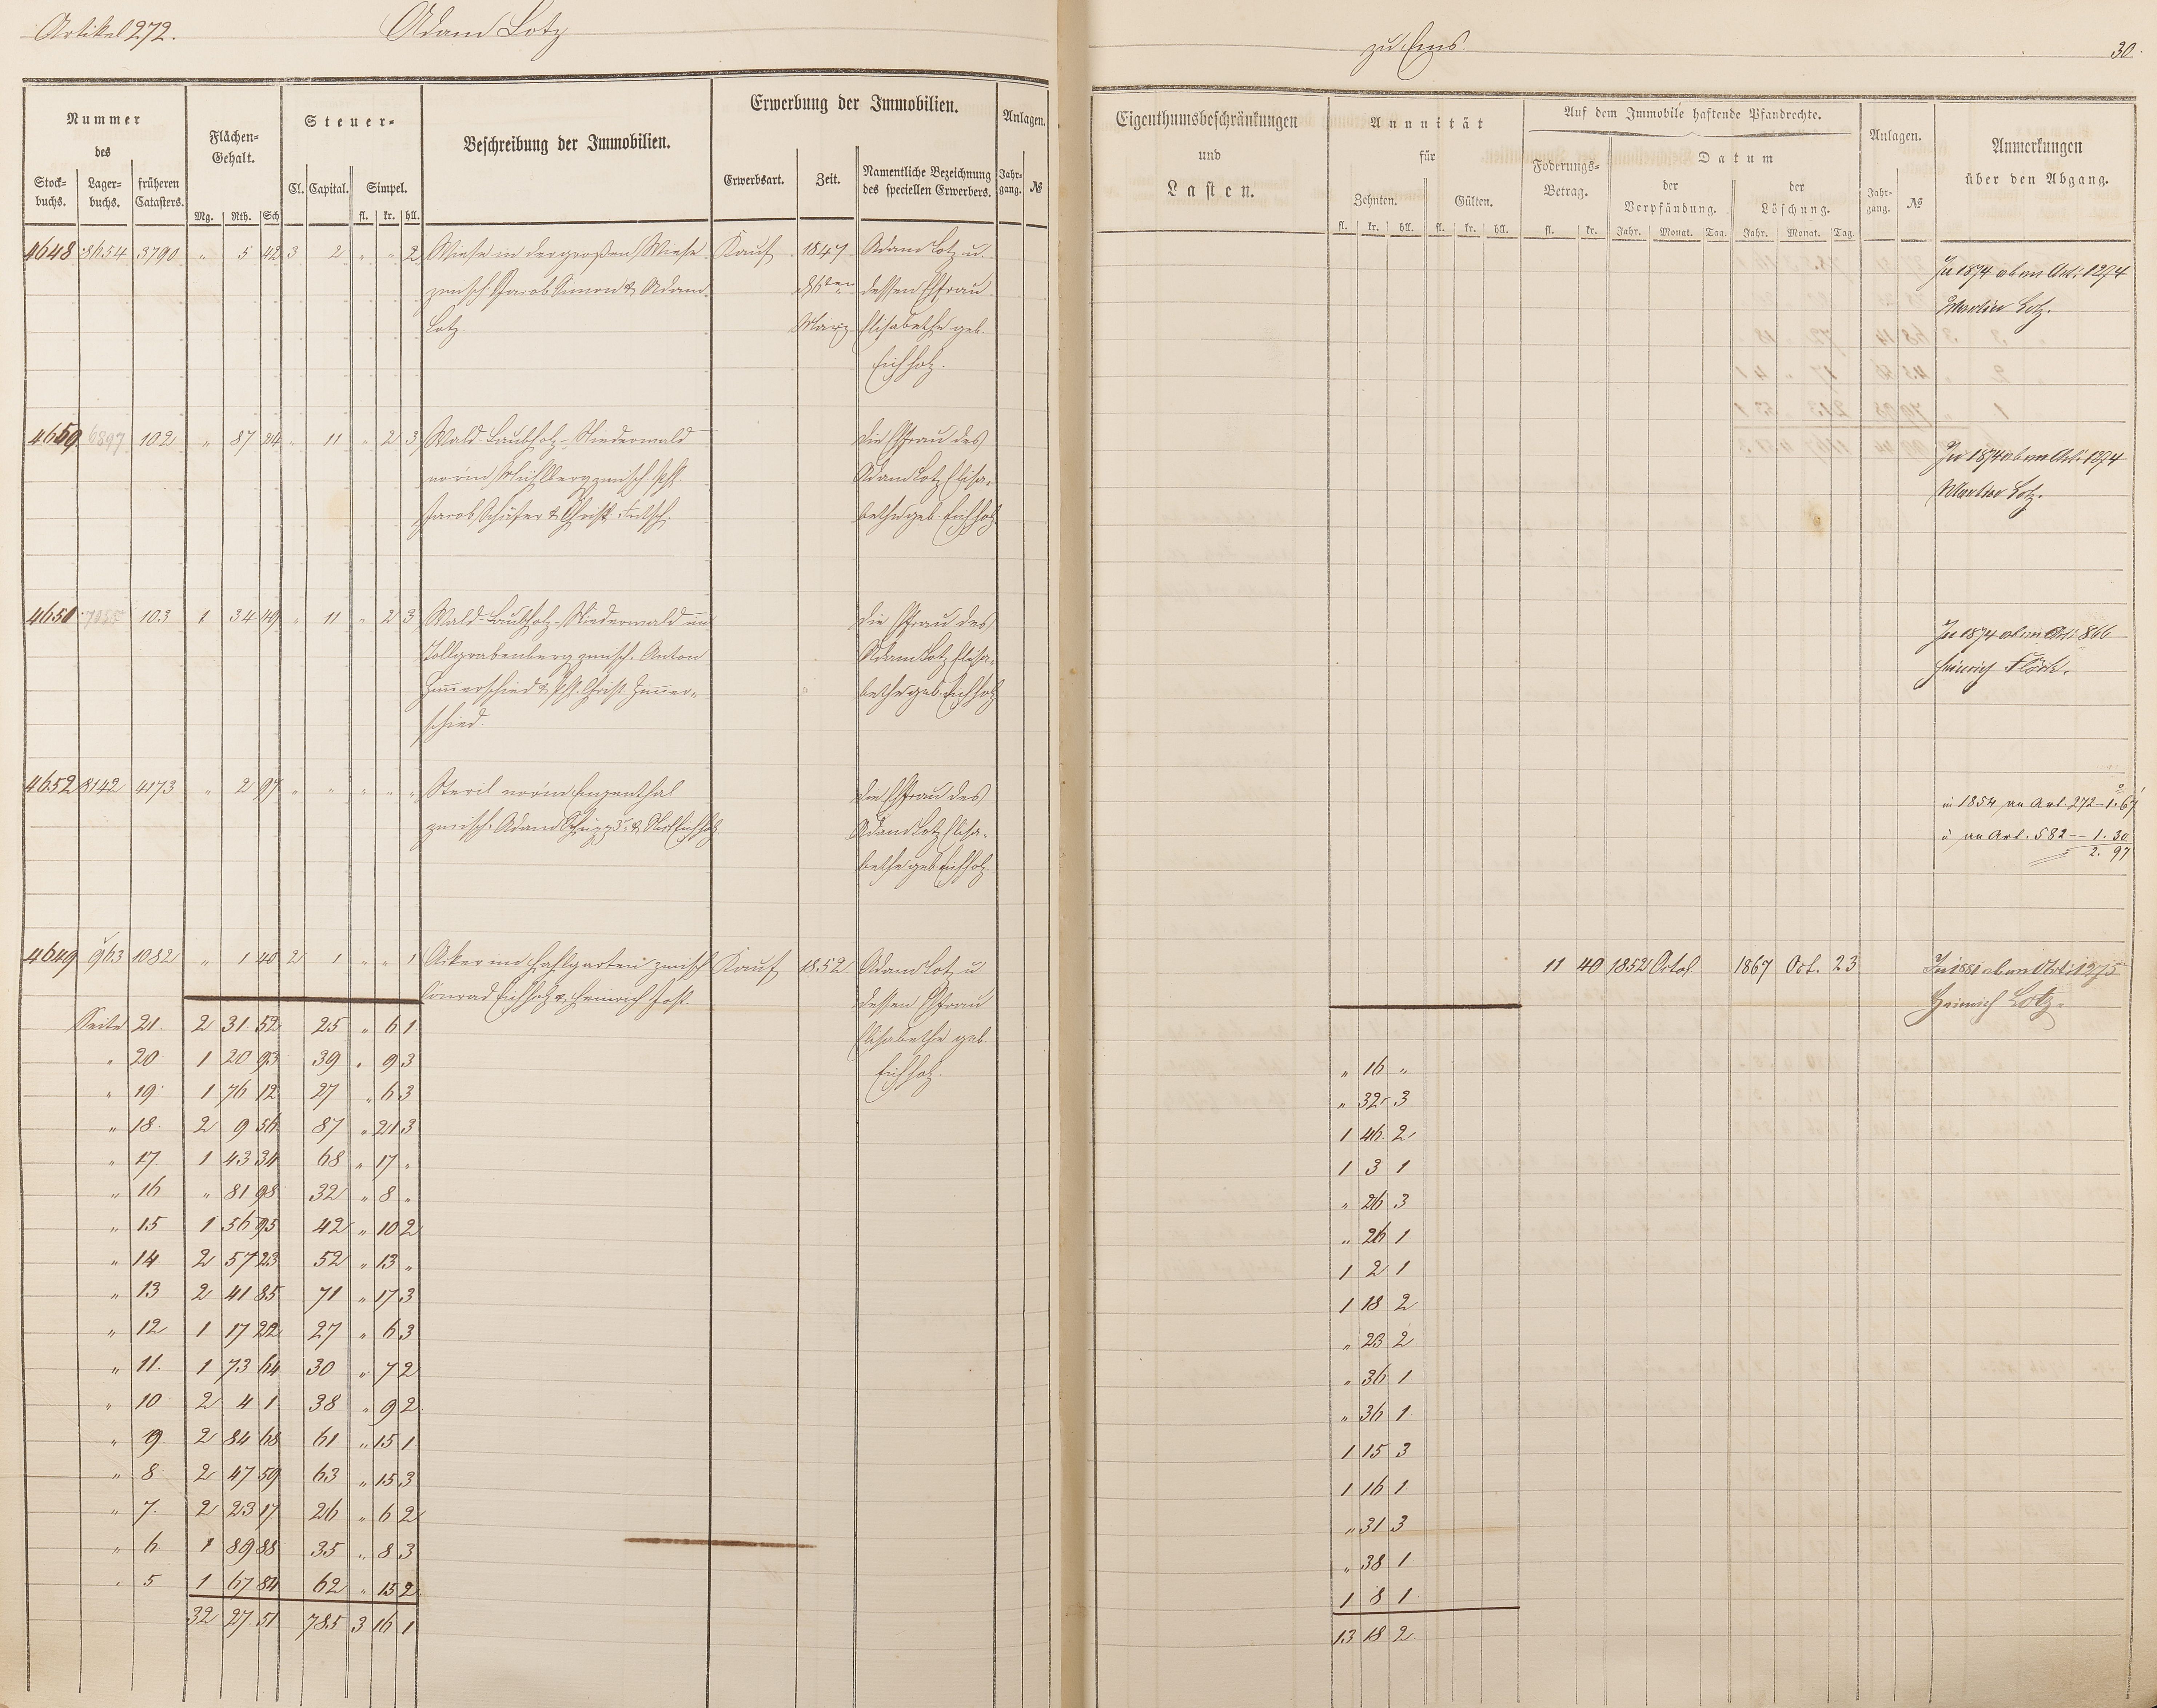 Artikel 272. Adam Lotz zu Ems. 30.
Nummer des
Stockbuchs. Lagerbuchs. früheren Catasters.
Flächen-Gehalt.
Mg. Rth. Sch
Steuer-
Cl. Capital. Simpel.
fl. kr. hll.
Beschreibung der Immobilien.
Erwerbung der Immobilien.
Erwerbsart. Zeit. Namentliche Bezeichnung des speciellen Erwerbers.
Anlagen.
Jahrgang. №
Eigenthumsbeschränkungen
und
Lasten.
Annuität
für
Zehnten. Gülten.
fl. kr. hll. fl. kr. hll.
Auf dem Immobile haftende Pfandrechte.
Foderungs-Betrag.
fl. kr.
Datum
der Verpfändung. der Löschung.
Jahr. Monat. Tag. Jahr. Monat. Tag.
Anlagen.
Jahrgang. №
Anmerkungen
über den Abgang.
4648 3790 „ 5 42 3 2 „ „ 2 Wiese in der großen Wiese Kauf 1847 Adam Lotz u. In 1874 ab an Art: 1294
zwisch. Jacob Simon & Adam dessen Ehfrau Martin Lotz.
Lotz. März Elisabethe geb.
Eichholz.
6897 102 „ 87 24 „ 11 „ 2 3 Wald-Laubholz-Niederwald die Ehfrau des In 1874 ab an Art: 1294
vorm Mühlberg zwisch. Adam Lotz Elisa- Martin Lotz.
Jacob Schäfer & Christ. bethe geb. Eichholz
103 1 34 49 „ 11 „ 2 3 Wald-Laubholz-Niederwald im die Ehfrau des In 1874 ab an Art: 866
Tollgrabenberg zwisch. Anton Adam Lotz Elisa-
Zimerschied & Christ. Zimer- bethe geb. Eichholz
schied.
4652 8142 4173 „ 2 97 „ „ „ „ „ Steril vorm die Ehfrau des in 1854 an Art. 272 – 1. 67
zwisch. Adam Adam Lotz Elisa- u an Art. 582 – 1. 30
bethe geb. Eichholz. 2. 97
4649 963 1082 „ 1 40 2 1 „ „ 1 Acker im Hahlgarten zwisch Kauf 1852 Adam Lotz u 11 40 1852 Octob. 1867 Oct. 23 In 1881 ab an Art: 1275
Conrad Eichholz & Heinrich Jost. dessen Ehfrau Heinrich Lotz.
Elisabethe geb
Eichholz.
Seite 21. 2 31 52 25 „ 6 1 „ 16 „
„ 20 1 20 93 39 „ 9 3 „ 32 3
„ 19 1 76 12 27 „ 6 3 1 46 2
„ 18 2 9 56 87 „ 21 3 1 3 1
„ 17 1 43 34 68 „ 17 „ „ 26 3
„ 16 „ 81 98 32 „ 8 „ „ 26 1
„ 15 1 56 95 42 „ 10 2 1 2 1
„ 14 2 57 23 52 „ 13 „ 1 18 2
„ 13 2 41 85 71 „ 17 3 „ 23 2
„ 12 1 17 22 27 „ 6 3 „ 36 1
„ 11. 1 73 64 30 „ 7 2 „ 36 1
„ 10 2 4 1 38 „ 9 2 1 15 3
„ 9 2 84 68 61 „ 15 1 1 16 1
„ 8 2 47 59 63 „ 15 3 „ 31 3
„ 7. 2 23 17 26 „ 6 2 „ 38 1
„ 6 1 89 88 35 „ 8 3 1 8 1
„ 5 1 67 84 62 „ 15 2
32 27 51 785 3 16 1 13 18 2